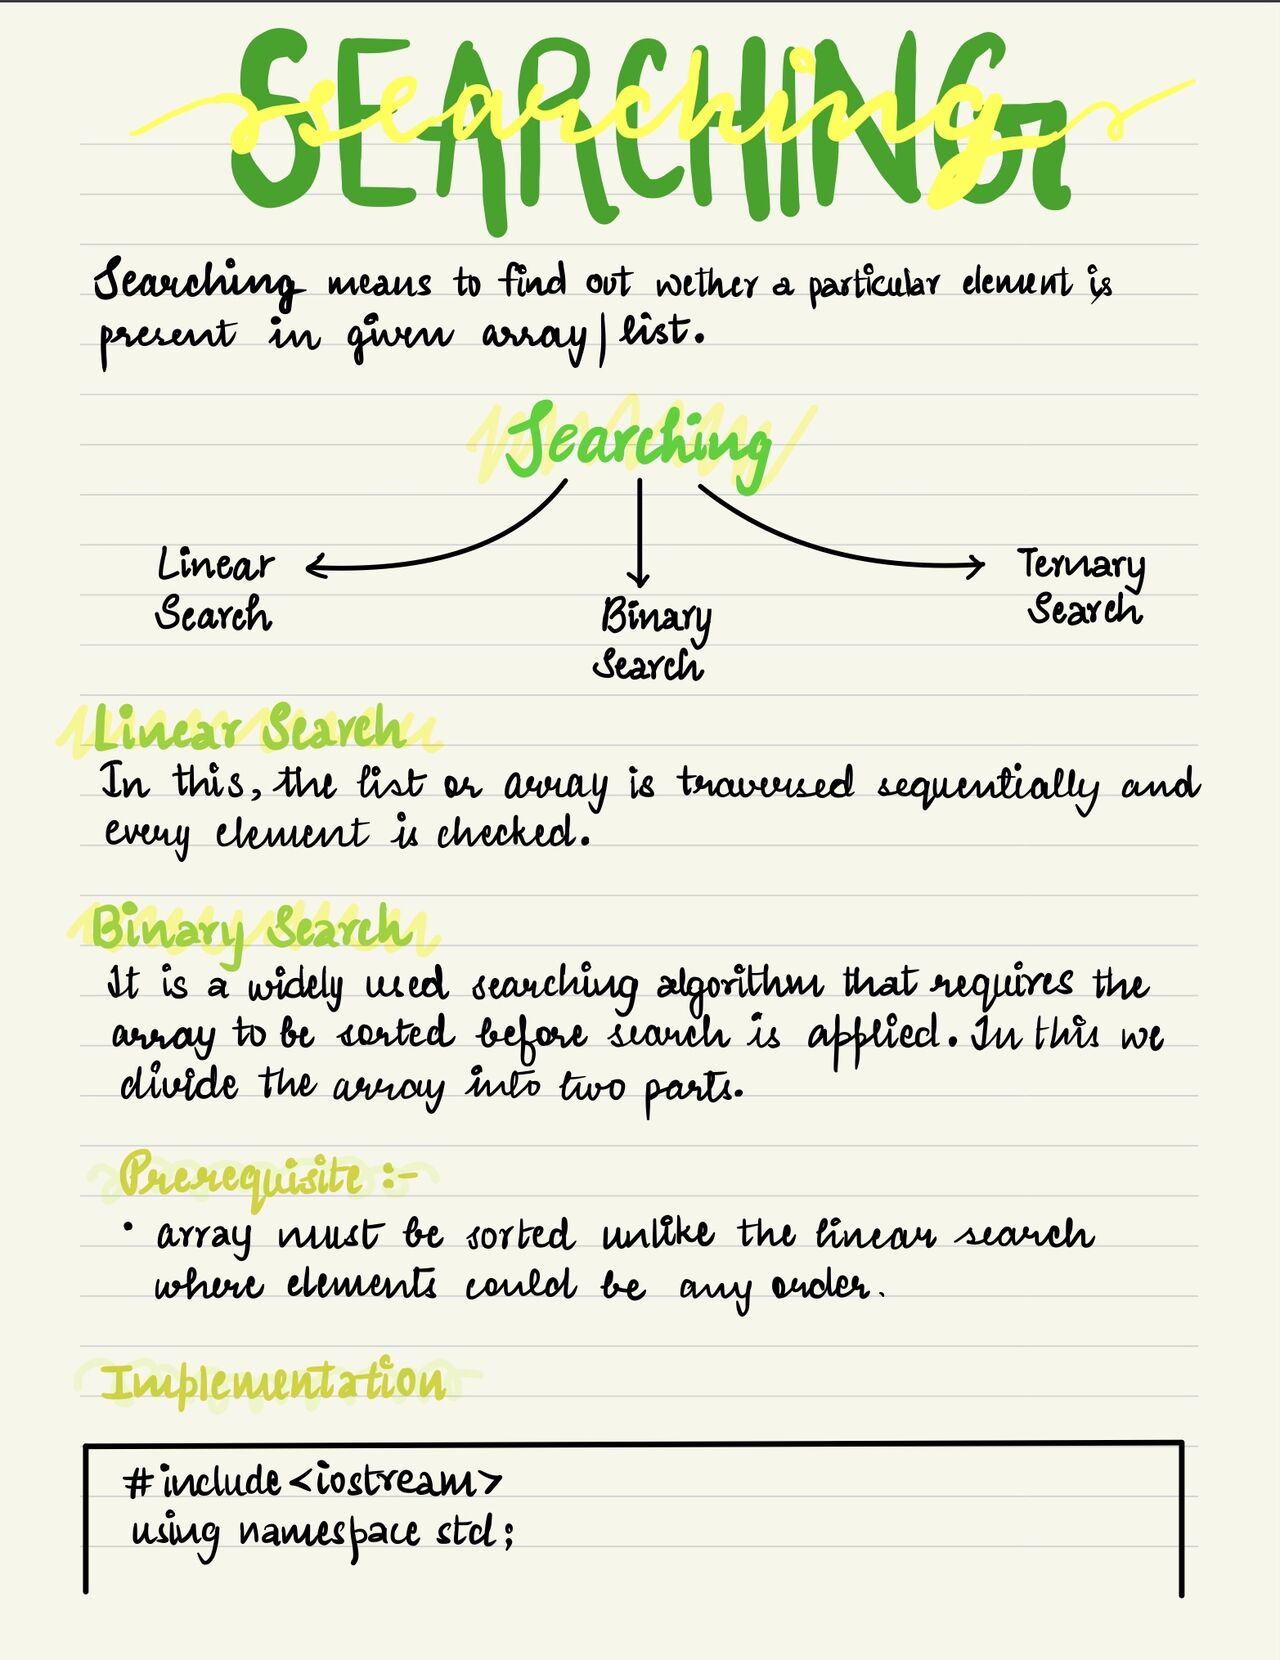 SEARCHING
searching
Searching means to find out wether a particular element is
present in given array/list.
Searching
Linear
Search
Binary
Search
Ternary
Search
Linear Search
In this, the list or array is traversed sequentially and
every element is checked.
Binary Search
It is a widely used searching algorithm that requires the
array to be sorted before search is applied. In this we
divide the array into two parts.
Prerequisite :-
• array must be sorted unlike the linear search
where elements could be any order.
Implementation
#include <iostream>
using namespace std;